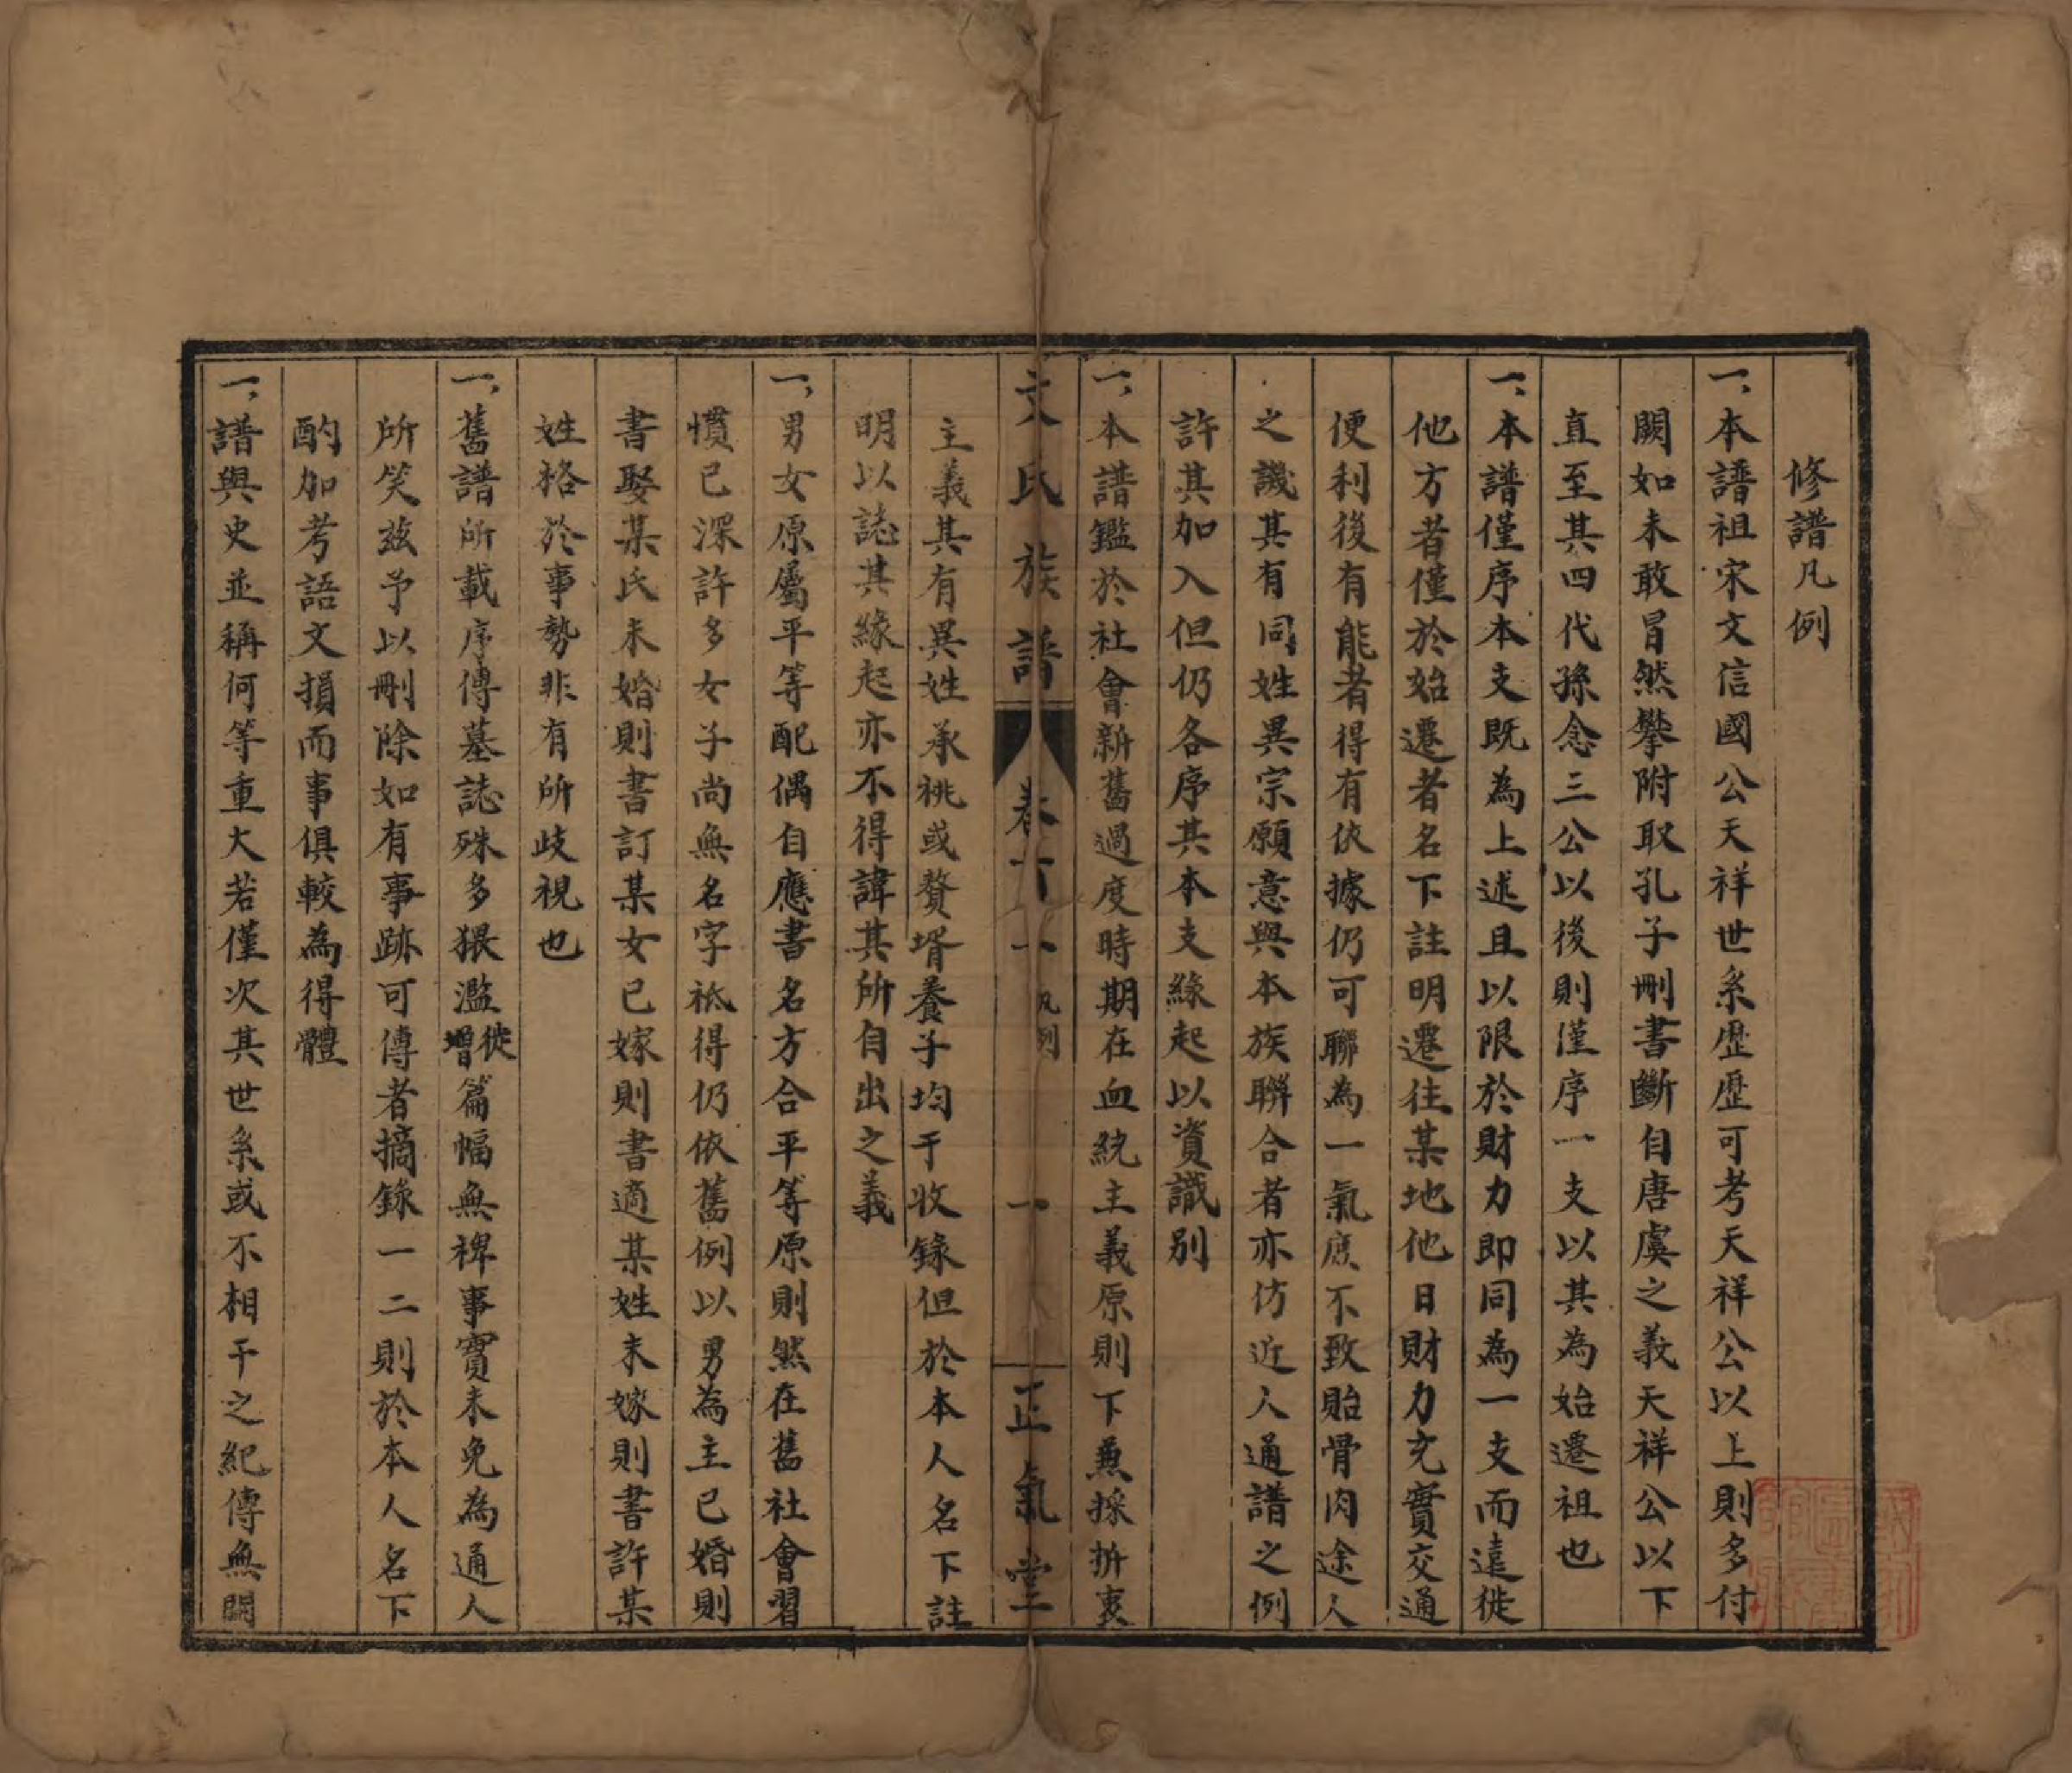 修譜凡例
一、本譜祖宋文信國公天祥世系歷歷可考天祥公以上則多付
闕如未敢冒然攀附取孔子刪書斷自唐虞之義天祥公以下
直至其四代孫念三公以後則僅序一支以其為始遷祖也
一、本譜僅序本支既為上述且以限於財力即同為一支而遠徙
他方者僅於始遷者名下註明遷往某地他日財力充實交通
便利後有能者得有依據仍可聯為一氣庶不致貽骨肉途人
之譏其有同姓異宗願意與本族聯合者亦仿近人通譜之例
許其加入但仍各序其本支緣起以資識別
一、本譜鑑於社會新舊過度時期在血統主義原則下兼採折衷
文氏族譜 卷首一 凡例 一 正氣堂
主義其有異姓承祧或贅壻養子均于收錄但於本人名下註
明以誌其緣起亦不得諱其所自出之義
一、男女原屬平等配偶自應書名方合平等原則然在舊社會習
慣已深許多女子尚無名字祇得仍依舊例以男為主已婚則
書娶某氏未婚則書訂某女已嫁則書適某姓未嫁則書許某
姓格於事勢非有所歧視也
一、舊譜所載序傳墓誌殊多猥濫徙增篇幅無裨事實未免為通人
所笑茲予以刪除如有事跡可傳者摘錄一二則於本人名下
酌加考語文損而事俱較為得體
一、譜與史並稱何等重大若僅次其世系或不相干之紀傳無關